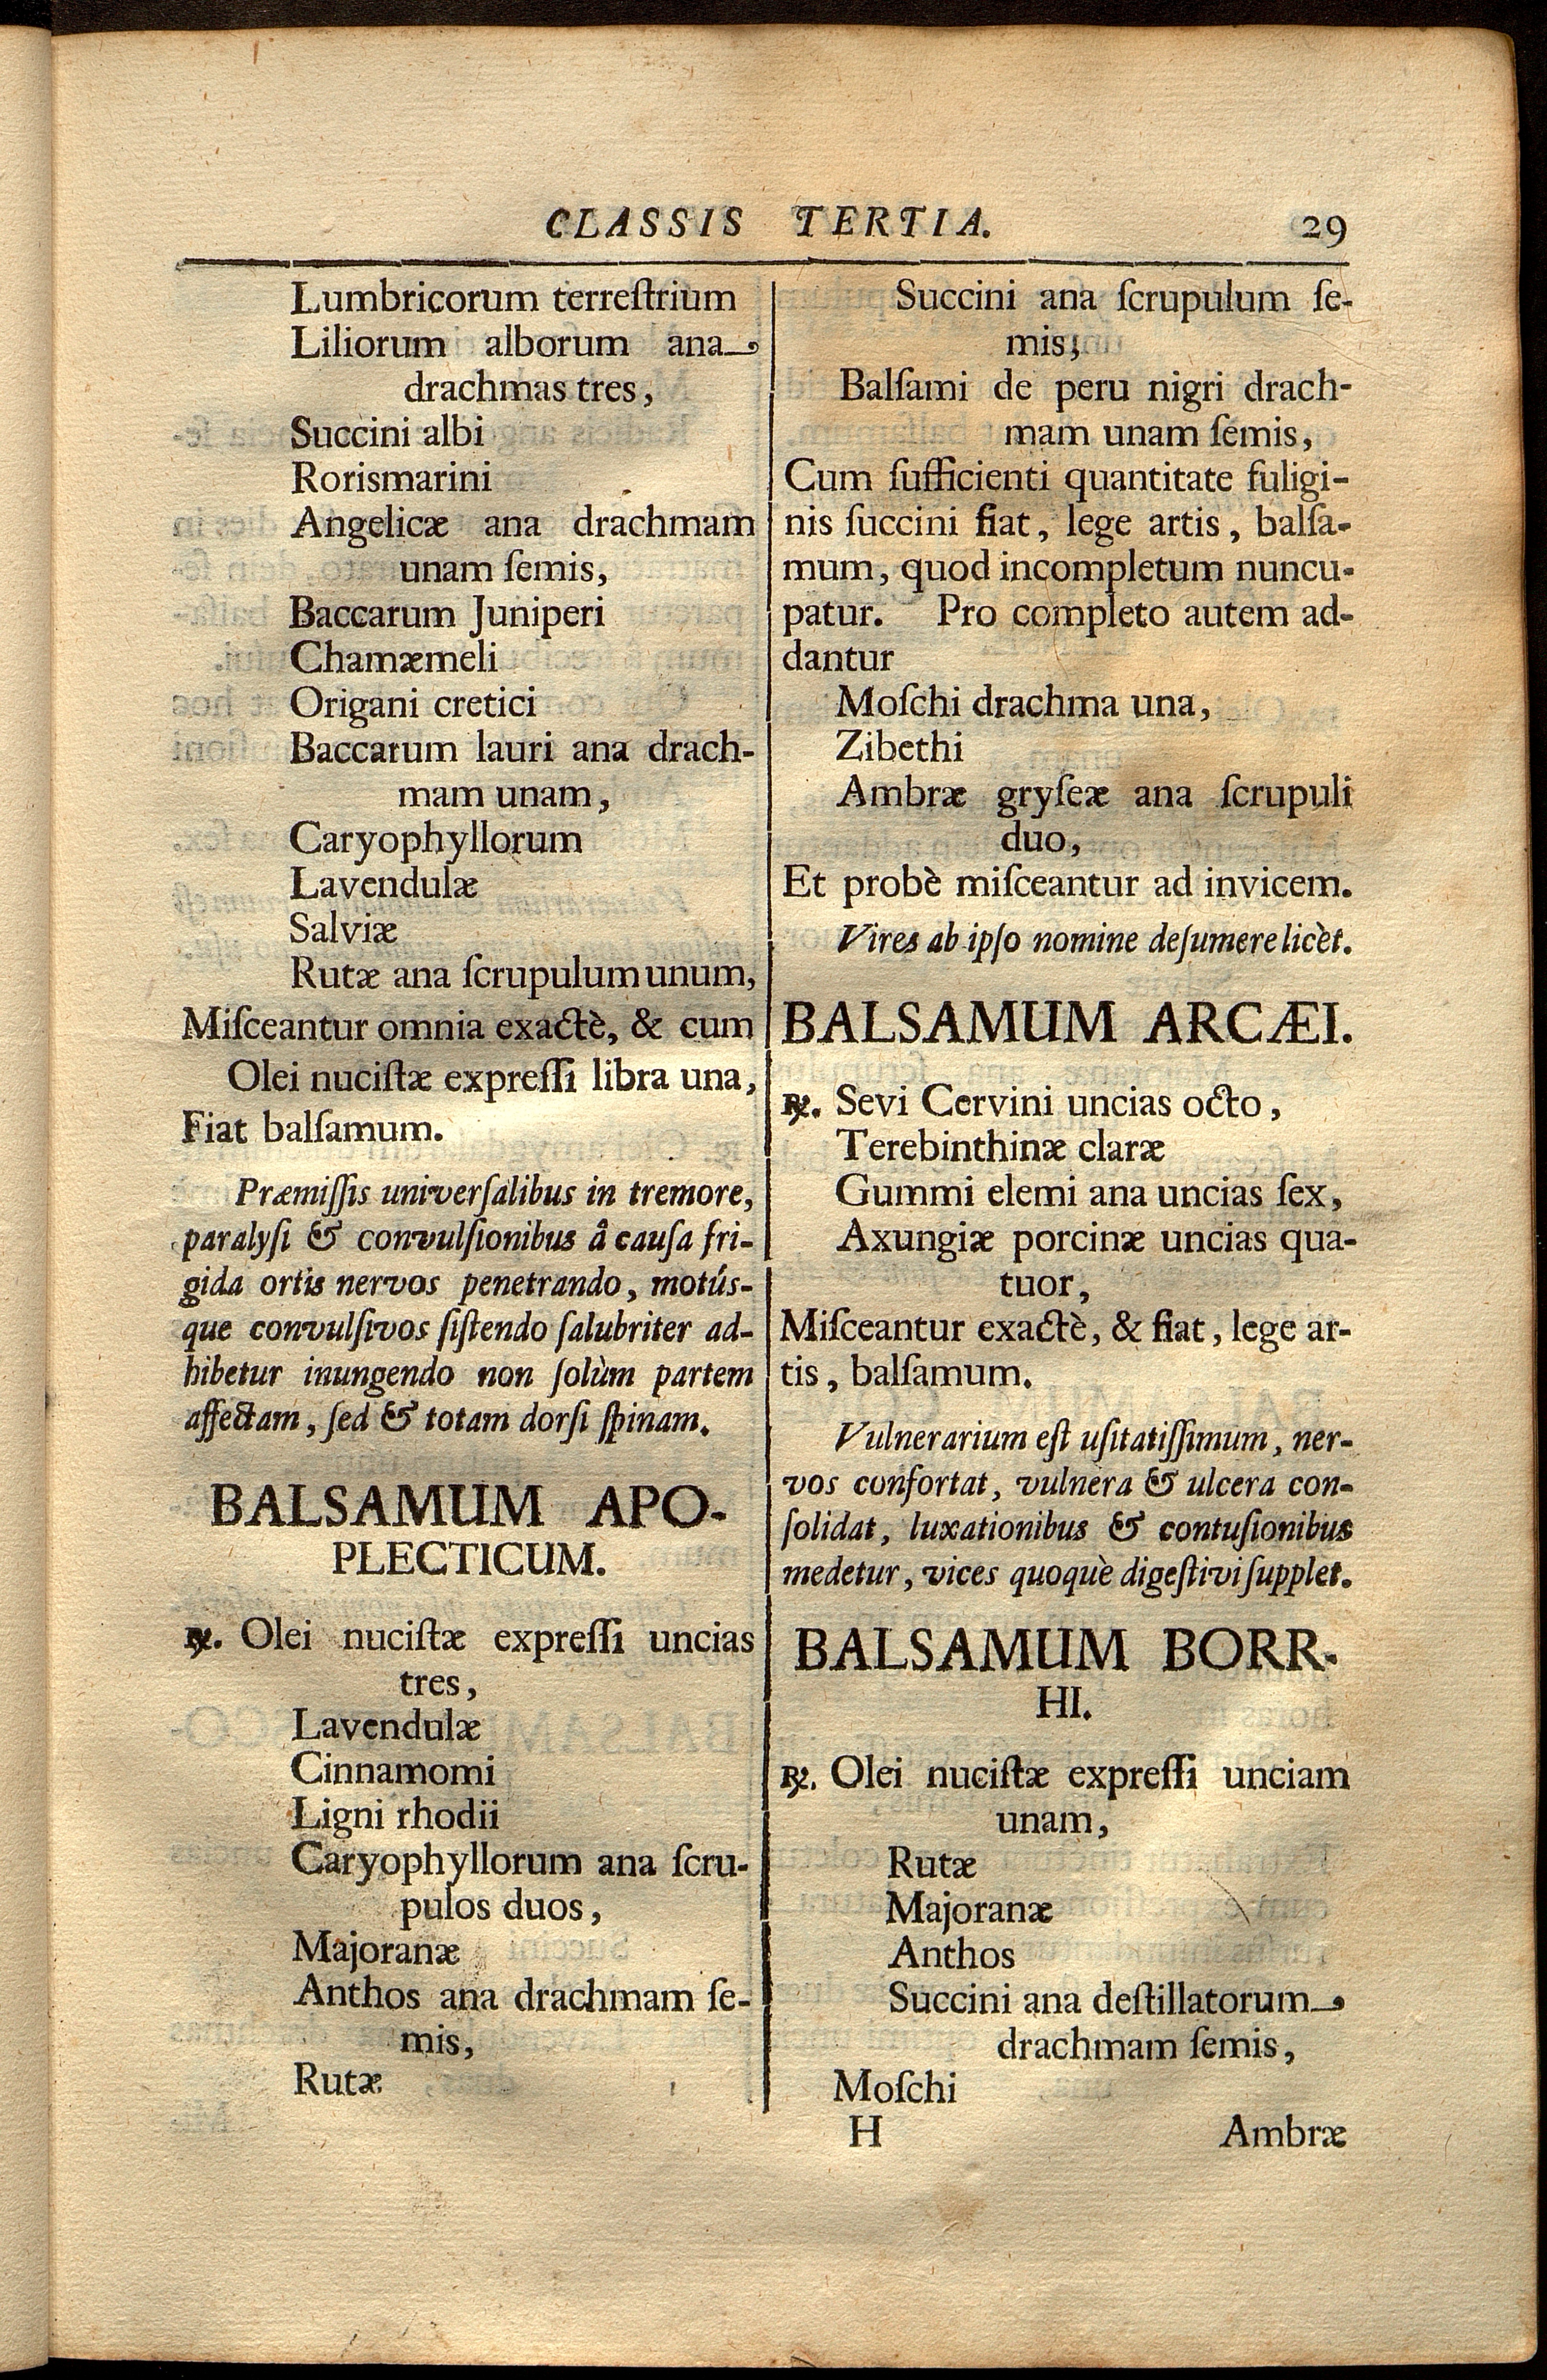 CLASSIS TERTIA. 29
Lumbricorum terreſtrium
Liliorum alborum ana
drachmas tres,
Succini albi
Rorismarini
Angelicæ ana drachmam
unam ſemis,
Baccarum Juniperi
Chamæmeli
Origani cretici
Baccarum lauri ana drach-
mam unam,
Caryophyllorum
Lavendulæ
Salviæ
Rutæ ana ſcrupulum unum,
Miſceantur omnia exactè, & cum
Olei nuciſtæ expreſſi libra una,
Fiat balſamum.
Præmiſſis univerſalibus in tremore,
paralyſi & convulſionibus â cauſa fri-
gida ortis nervos penetrando, motús-
que convulſivos ſiſtendo ſalubriter ad-
hibetur inungendo non ſolùm partem
affectam, ſed & totam dorſi ſpinam.
BALSAMUM APO-
PLECTICUM.
℞. Olei nuciſtæ expreſſi uncias
tres,
Lavendulæ
Cinnamomi
Ligni rhodii
Caryophyllorum ana ſcru-
pulos duos,
Majoranæ
Anthos ana drachmam ſe-
mis,
Rutæ
Succini ana ſcrupulum ſe-
mis;
Balſami de peru nigri drach-
mam unam ſemis,
Cum ſufficienti quantitate fuligi-
nis ſuccini fiat, lege artis, balſa-
mum, quod incompletum nuncu-
patur. Pro completo autem ad-
dantur
Moſchi drachma una,
Zibethi
Ambræ gryſeæ ana ſcrupuli
duo,
Et probè miſceantur ad invicem.
Vires ab ipſo nomine deſumere licèt.
BALSAMUM ARCÆI.
℞. Sevi Cervini uncias octo,
Terebinthinæ claræ
Gummi elemi ana uncias ſex,
Axungiæ porcinæ uncias qua-
tuor,
Miſceantur exactè, & fiat, lege ar-
tis, balſamum.
Vulnerarium eſt uſitatiſſimum, ner-
vos confortat, vulnera & ulcera con-
ſolidat, luxationibus & contuſionibus
medetur, vices quoquè digeſtivi ſupplet.
BALSAMUM BORR-
HI.
℞. Olei nuciſtæ expreſſi unciam
unam,
Rutæ
Majoranæ
Anthos
Succini ana deſtillatorum
drachmam ſemis,
Moſchi
H Ambræ